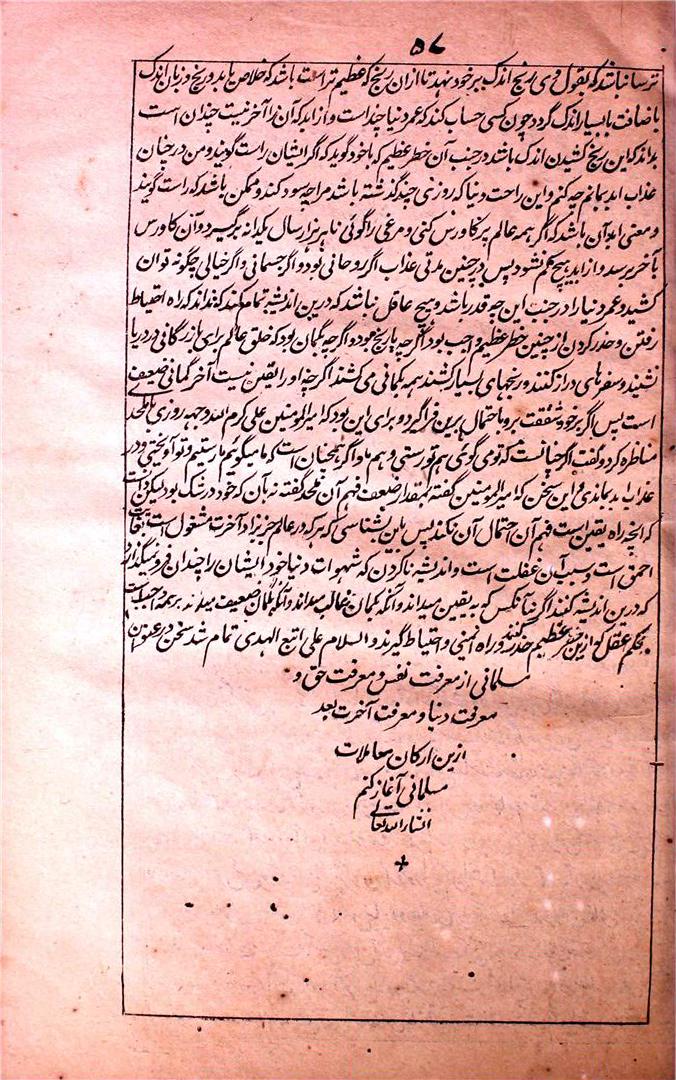 ۵۷
ترسا نباشد که بقول وی رنج اندک بر خود نهد تا از ان رنج که عظیم تر است باشد که خلاص یابد و رنج و زیان اندک
باضافت با بسیار اندک گردد و چون کسی حساب کند که عمر دنیا چند است و از ابد که آن را آخر نیست چندان است
بداند که این رنج کشیدن اندک باشد در جنب آن خطر عظیم که با خود گوید که اگر ایشان راست گویند و من در چنان
عذاب ابد بمانم چه کنم و این راحت دنیا که روزی چند گذشته باشد مرا چه سود کند و ممکن باشد که راست گویند
و معنی ابد آن باشد که اگر همه عالم پر کاورس کنی و مرغی را گوئی تا بهر هزار سال یکدانه برگیرد و آن کاورس
بآخر برسد و از ابد هیچ کم نشود پس در چنین مدتی عذاب اگر روحانی بود و اگر جسمانی و اگر خیالی چگونه توان
کشید و عمر دنیا را در جنب این چه قدر باشد و هیچ عاقل نباشد که درین اندیشه تمام کند که نداند که راه احتیاط
رفتن و حذر کردن از چنین خطر عظیم واجب بود اگرچه با رنج بود و اگرچه بگمان بود که خلق عالم برای بازرگانی در دریا
نشینند و سفرهای دراز کنند و رنجهای بسیار کشند همه بگمانی می کشند اگرچه او را یقین نیست آخر گمانی ضعیف
است پس اگر بر خود شفقت برد باحتمال برین فرا گیرد و برای این بود که امیر المومنین علی کرم الله وجهه روزی با ملحد
مناظره کرد و گفت اگر چنانست که تو می گوی هم تو رستی و هم ما و اگر همچنان است که ما میگوئیم ما رستیم و تو آویختی و در
عذاب ابد بماندی و این سخن که امیر المومنین گفته بمقدار ضعف فهم آن ملحد گفته نه بآن که خود در شک بود لیکن دانست
که آنچه راه یقین است فهم آن احتمال آن نکند پس باین بشناسی که هر که در عالم جز بزاد آخرت مشغول است بغایت
احمق است و سبب آن غفلت است و اندیشه ناکردن که شهوات دنیا خود ایشان را چندان فرو نمیگذارد
که درین اندیشه کنند اگر نه آنکس که به یقین میداند و آنکه بگمان غالب میداند و آنکه بگمان ضعیف میداند بر همه واجب است
بحکم عقل که ازین خطر عظیم حذر کنند و راه ایمنی و احتیاط گیرند و السلام علی اتبع الهدی تمام شد سخن در عنوان
مسلمانی از معرفت نفس و معرفت حق و
معرفت دنیا و معرفت آخرت بعد
ازین ارکان معاملات
مسلمانی آغاز کنم
انشاء الله تعالی